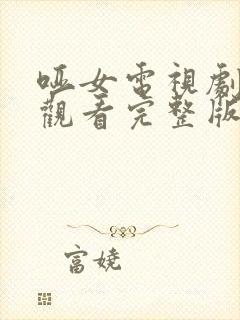 啞女電視劇
觀看完整版
富娆